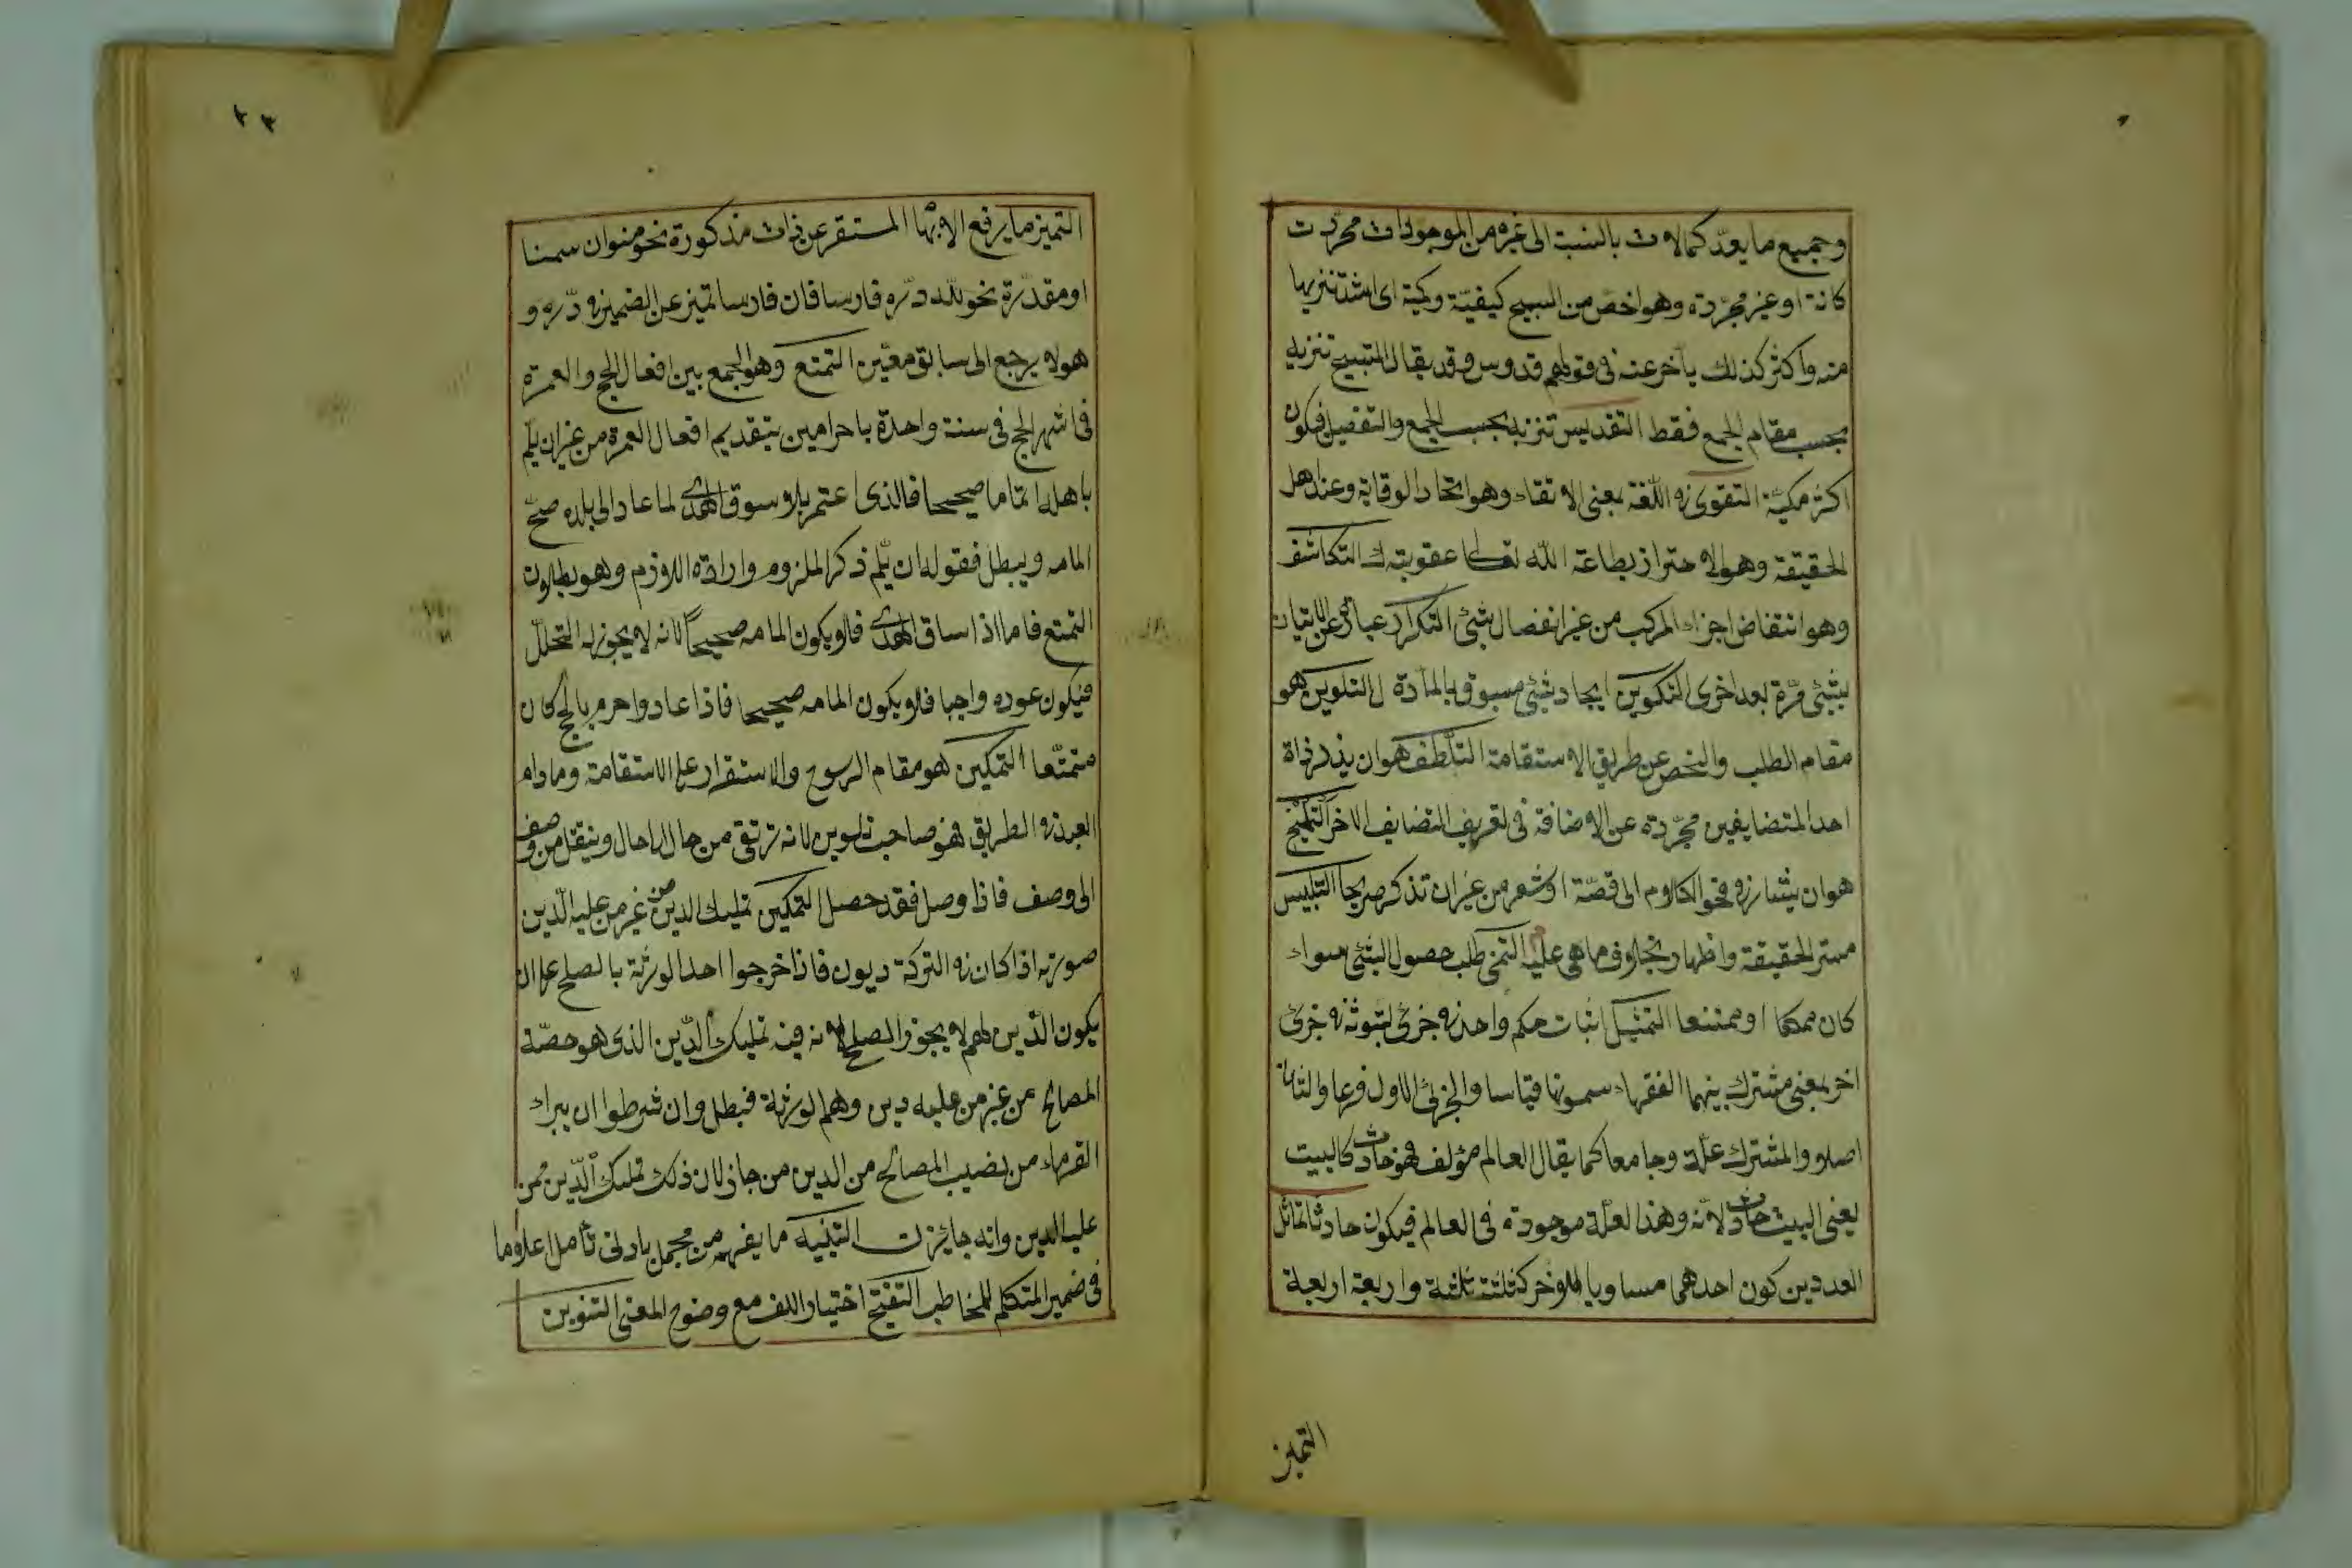 وجميع ما يعدّ كمالات بالنسبة الى غيره من الموجودات مجردات
كانت او غير مجرّدة وهو اخصّ من التسبيح كيفيّة وكمية اى اشدّ تنزيها
منه واكثر كذلك يأخر عنه فى قولهم قدوس وقد يقال التسبيح تنزيه
بحسب مقام الجمع فقط التقديس تنزيه بحسب الجمع والتفصيل فيكون
اكثر مكيّة التقوى فى اللّغة بمعنى الاتقاء وهو اتخاذ الوقاية وعند اهل
الحقيقة وهو الاحتراز بطاعة اللّه تعالى عقوبته ك التكاشف
وهو انتقاض اجزاء المركب من غير انفصال شئ التكرار عبارة عن الاتيان
بشئ مرّة بعد اخرى التكوين ايجاد شئ مسبوق بالمادّة ل التلوين هو
مقام الطلب والفحص عن طريق الاستقامة التلطف هوان يذكر ذاة
احد المتضايفين مجرّدة عن الاضافة فى تعريف المتضايف الاخر التلميح
هوان يشار فى فحو الكلام الى قصّة او شعر من غير ان تذكر صريحا التلبيس
ستر الحقيقة واظهار بخلاف ما هى عليه التمنى طلب حصول الشئ سواء
كان ممكنا او ممتنعا التمثيل اثبات حكم واحد فى جزئ لثبوته فى جزئ
اخر لمعنى مشترك بينهما الفقهاء سمونها قياسا والجزئ الاول فرعا والثانى
اصلا والمشترك علّة وجامعا كما يقال العالم مؤلف فهو حادث كالبيت
يعنى البيت حادث لانّه وهذا لعلّة موجودة فى العالم فيكون حادثا تماثل
العددين كون احدهما مساويا للاخر كثلثة ثلثة واربعة اربعة
التميز
٢٣
التميز ما يرفع الابهام المستقر عن ذات مذكورة نحو منوان سمنا
او مقدّرة نحو للّه درّه فارسا فان فارسا تميز عن الضمير فى درّه و
هو لا يرجع الى سابق معيّن التمتع وهو الجمع بين افعال الحج والعمرة
فى اشهر الحج فى سنة واحدة باحرامين بتقديم افعال العمرة من غير ان يلّم
باهله الماما صحيحا فالذى اعتمر بلا سوق الهدى لما عاد الى بلده صحّ
المامه ويبطل فقوله ان يلّم ذكر الملزوم وارادة اللازم وهو بطلان
التمتع فاما اذا ساق الهدى فلا يكون المامه صحيحاً لانه لا يجوز له التحلل
فيكون عوده واجبا فلا يكون المامه صحيحا فاذا عاد واحرم بالحج كان
متمتّعا التمكين هو مقام الرسوخ والاستقرار على الاستقامة وما دام
العبد فى الطريق فهو صاحب تلوين لانه ترتقى من حال الى حال وينتقل من وصف
الى وصف فاذا وصل فقد حصل التمكين تمليك الدين من غير من عليه الدّين
صورته اذا كان فى التركة ديون فاذا اخرجوا احد الورثة بالصلح على ان
يكون الدّين لهم لا يجوز الصلح لانه فيه تمليك الدّين الذى هو حصّة
المصالح من غير من عليه دين وهم الورثة فبطل وان شرطوا ان يبراء
الغرماء من نصيب المصالح من الدين من جاز لان ذلك تمليك الدّين ممن
عليه الدين وانه جائز ن التنبيه ما يفهم من مجمل بادنى تأمل اعلاما
فى ضمير المتكلم للمخاطب التنقيح اختيار اللف مع وضوح المعنى التنوين